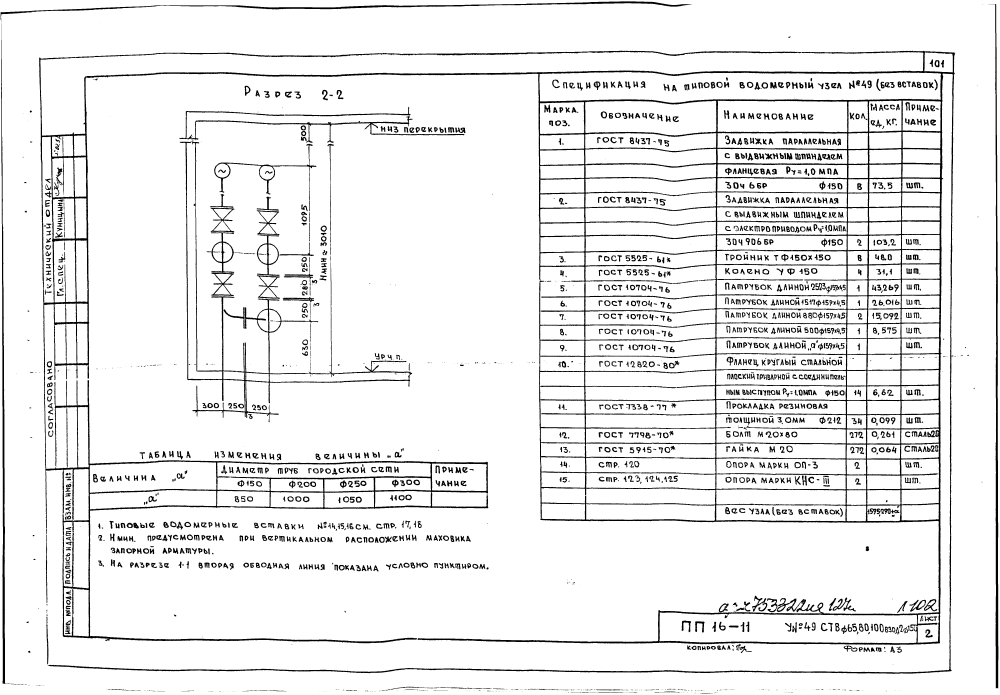 101
Разрез 2-2
500
низ перекрытия
1095
Hмин = 3010
250
280
3
250
3
630
Ур.ч.п.
300 250 250
3
Таблица изменения величины „а"
Величина „а" Диаметр труб городской сети Примечание
Ф150 Ф200 Ф250 Ф300
„а" 850 1000 1050 1100
1. Типовые водомерные вставки №14,15,16 см. стр. 17,18
2. Hмин. предусмотрена при вертикальном расположении маховика
запорной арматуры.
3. На разрезе 1-1 вторая обводная линия показана условно пунктиром.
Спецификация на типовой водомерный узел №49 (без вставок)
Марка поз. Обозначение Наименование Кол. Масса ед, кг. Примечание
1. ГОСТ 8437-75 Задвижка параллельная
с выдвижным шпинделем
фланцевая Ру=1,0 МПа
30ч 6 бр ф150 8 73,5 шт.
2. ГОСТ 8437-75 Задвижка параллельная
с выдвижным шпинделем
с электроприводом Ру-1,0мпа
30ч 906 бр ф150 2 103,2 шт.
3. ГОСТ 5525-61* Тройник ТФ150х150 8 48,0 шт.
4. ГОСТ 5525-61* Колено УФ 150 4 31,1 шт.
5. ГОСТ 10704-76 Патрубок длиной 2503ф159х4,5 1 43,269 шт.
6. ГОСТ 10704-76 Патрубок длиной 1517ф159х4,5 1 26,016 шт.
7. ГОСТ 10704-76 Патрубок длиной 880ф159х4,5 2 15,092 шт.
8. ГОСТ 10704-76 Патрубок длиной 500ф159х4,5 1 8,575 шт.
9. ГОСТ 10704-76 Патрубок длиной „а"ф159х4,5 1 шт.
10. ГОСТ 12820-80* Фланец круглый стальной
плоский приварной с соединитель-
ным выступом Ру=1,0мпа ф150 14 6,62 шт.
11. ГОСТ 7338-77* Прокладка резиновая
толщиной 3,0мм ф212 34 0,099 шт.
12. ГОСТ 7798-70* Болт М20х80 272 0,261 Сталь20
13. ГОСТ 5915-70* Гайка М20 272 0,064 Сталь20
14. стр. 120 Опора марки ОП-3 2 шт.
15. стр. 123, 124,125 Опора марки КНС-III 2 шт.
Вес узла (без вставок)
Технический отдел
Гл. спец. Куницына
Согласовано
Взам. инв. №
Подпись и дата
Инв. № подл.
л 102
ПП 16-11
У№49 СТВф65,80,100
Лист
2
Копировал:
Формат: А3